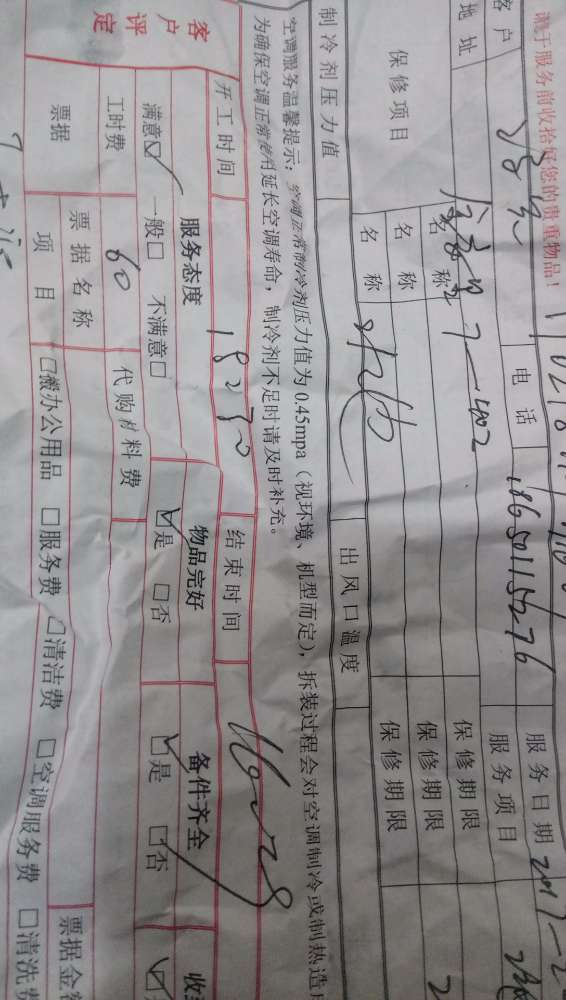 请于服务前收拾好您的贵重物品!
客户 电话 18650115276 服务日期 2017-2
地址 7-402 服务项目
保修项目 名称 保修期限
名称 保修期限
名称 保修期限
制冷剂压力值 出风口温度
空调服务温馨提示:空调正常制冷剂压力值为0.45mpa(视环境、机型而定),拆装过程会对空调制冷或制热造
为确保空调正常 延长空调寿命,制冷剂不足时请及时补充。
开工时间 18:30 结束时间
客户评定 服务态度 物品完好 备件齐全
满意☑ 一般□ 不满意□ ☑是 □否 ☑是 □否
工时费 60 代购材料费
票据 票据名称 票据金
项目 □搬办公用品 □服务费 □清洁费 □空调服务费 □清洗